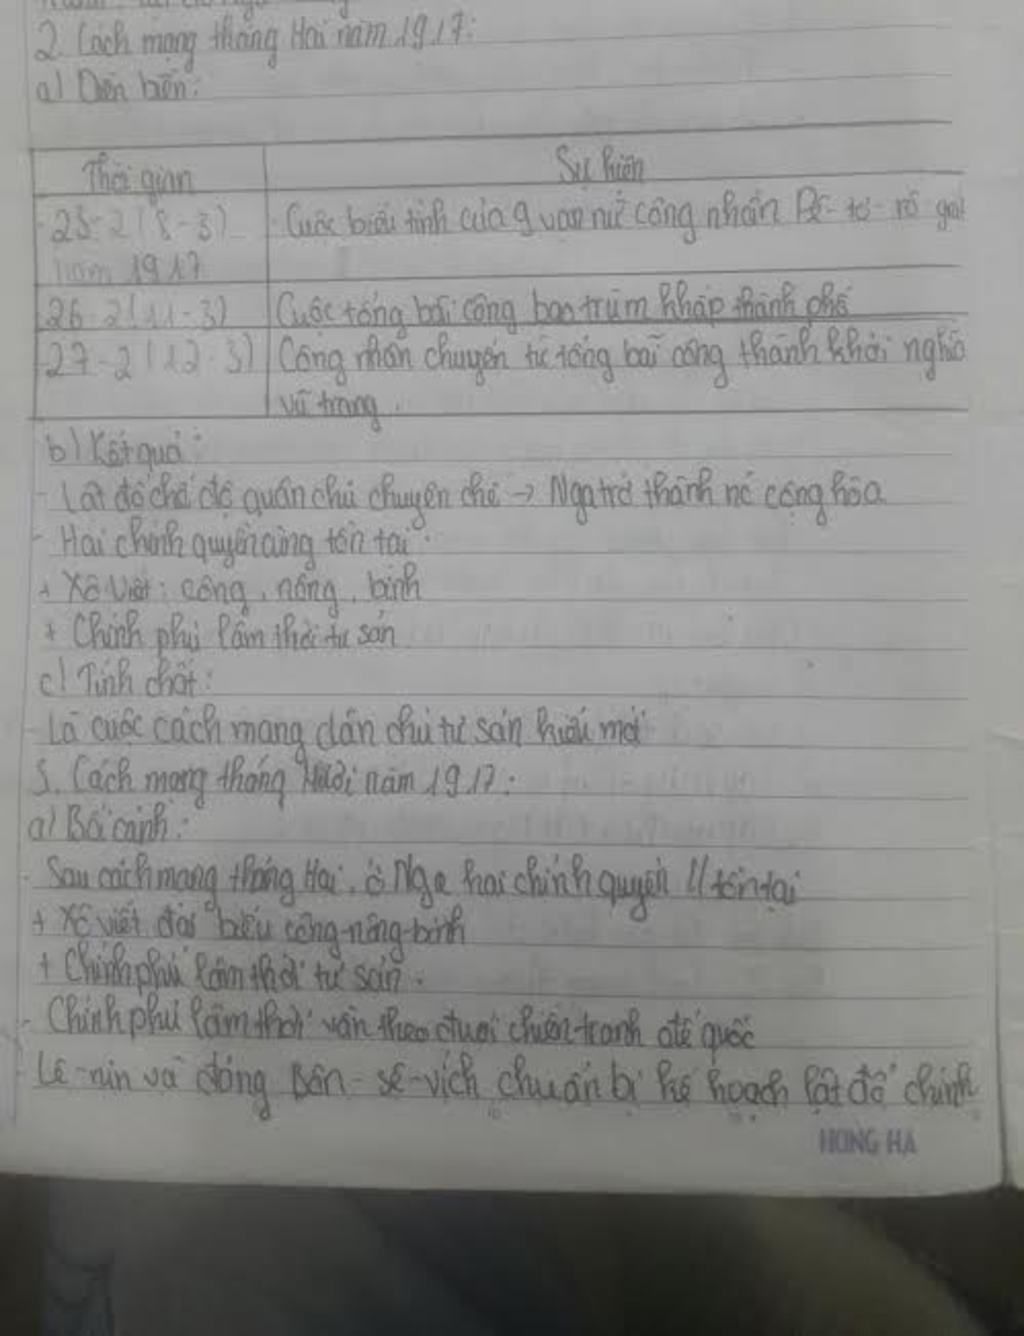 2. Cách mạng tháng Hai năm 1917:
a) Diễn biến:
Thời gian | Sự kiện
23-2 (8-3) năm 1917 | Cuộc biểu tình của 9 vạn nữ công nhân Pê-tơ-rô gơ
26-2 (11-3) | Cuộc tổng bãi công bao trùm khắp thành phố
27-2 (12-3) | Công nhân chuyển từ tổng bãi công thành khởi nghĩa
vũ trang.
b) Kết quả:
- Lật đổ chế độ quân chủ chuyên chế → Nga trở thành nc cộng hòa
- Hai chính quyền cùng tồn tại
+ Xô Viết: công, nông, binh
+ Chính phủ lâm thời tư sản
c) Tính chất:
- Là cuộc cách mạng dân chủ tư sản kiểu mới
3. Cách mạng tháng Mười năm 1917:
a) Bối cảnh:
- Sau cách mạng tháng Hai, ở Nga hai chính quyền // tồn tại
+ Xô viết đại biểu công-nông-binh
+ Chính phủ lâm thời tư sản.
- Chính phủ lâm thời vẫn theo đuổi chiến tranh đế quốc
- Lê-nin và đảng Bôn-sê-vích chuẩn bị kế hoạch lật đổ chính
HONG HA